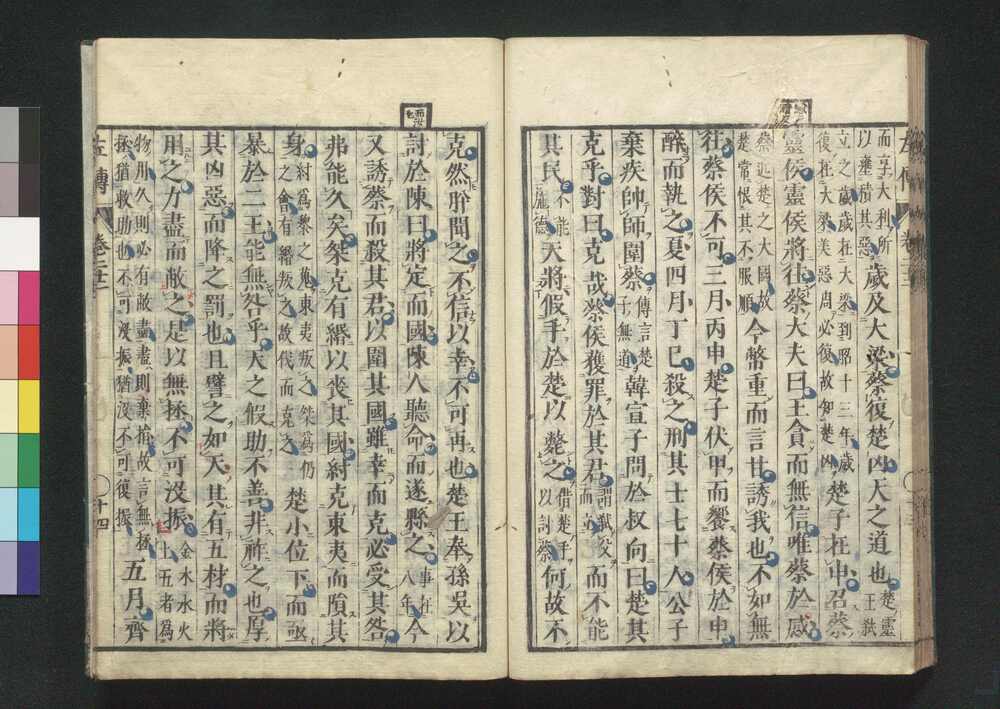 而享大利所以壅積其惡歲及大梁蔡復楚凶天之道也楚靈王弑
立之歲歲在大梁到昭十三年歲復在大梁美惡周必復故知楚凶楚子在申召蔡
靈侯靈侯將往蔡大夫曰王貪而無信唯蔡於感
蔡近楚之大國故楚常恨其不服順今幣重而言甘誘我也不如無
往蔡侯不可三月丙申楚子伏甲而饗蔡侯於申
醉而執之夏四月丁巳殺之刑其士七十人公子
棄疾帥師圍蔡傳言楚子無道韓宣子問於叔向曰楚其
克乎對曰克哉蔡侯獲罪於其君謂弑父而立而不能
其民不能施德天將假手於楚以斃之借楚手以討蔡何故不
克然肸聞之不信以幸不可再也楚王奉孫吳以
討於陳曰將定而國陳人聽命而遂縣之事在八年今
又誘蔡而殺其君以圍其國雖幸而克必受其咎
弗能久矣桀克有緡以喪其國紂克東夷而隕其
身紂為黎之蒐東夷叛之桀為仍之會有緡叛之故伐而克之楚小位下而亟
暴於二王能無咎乎天之假助不善非祚之也厚
其凶惡而降之罰也且譬之如天其有五材而將
用之力盡而敝之是以無拯不可沒振金木水火土五者為
物用久則必有敝盡盡則棄捐故言無拯拯猶救助也不可沒振猶沒不可復振五月齊
左傳
卷二十二
十四